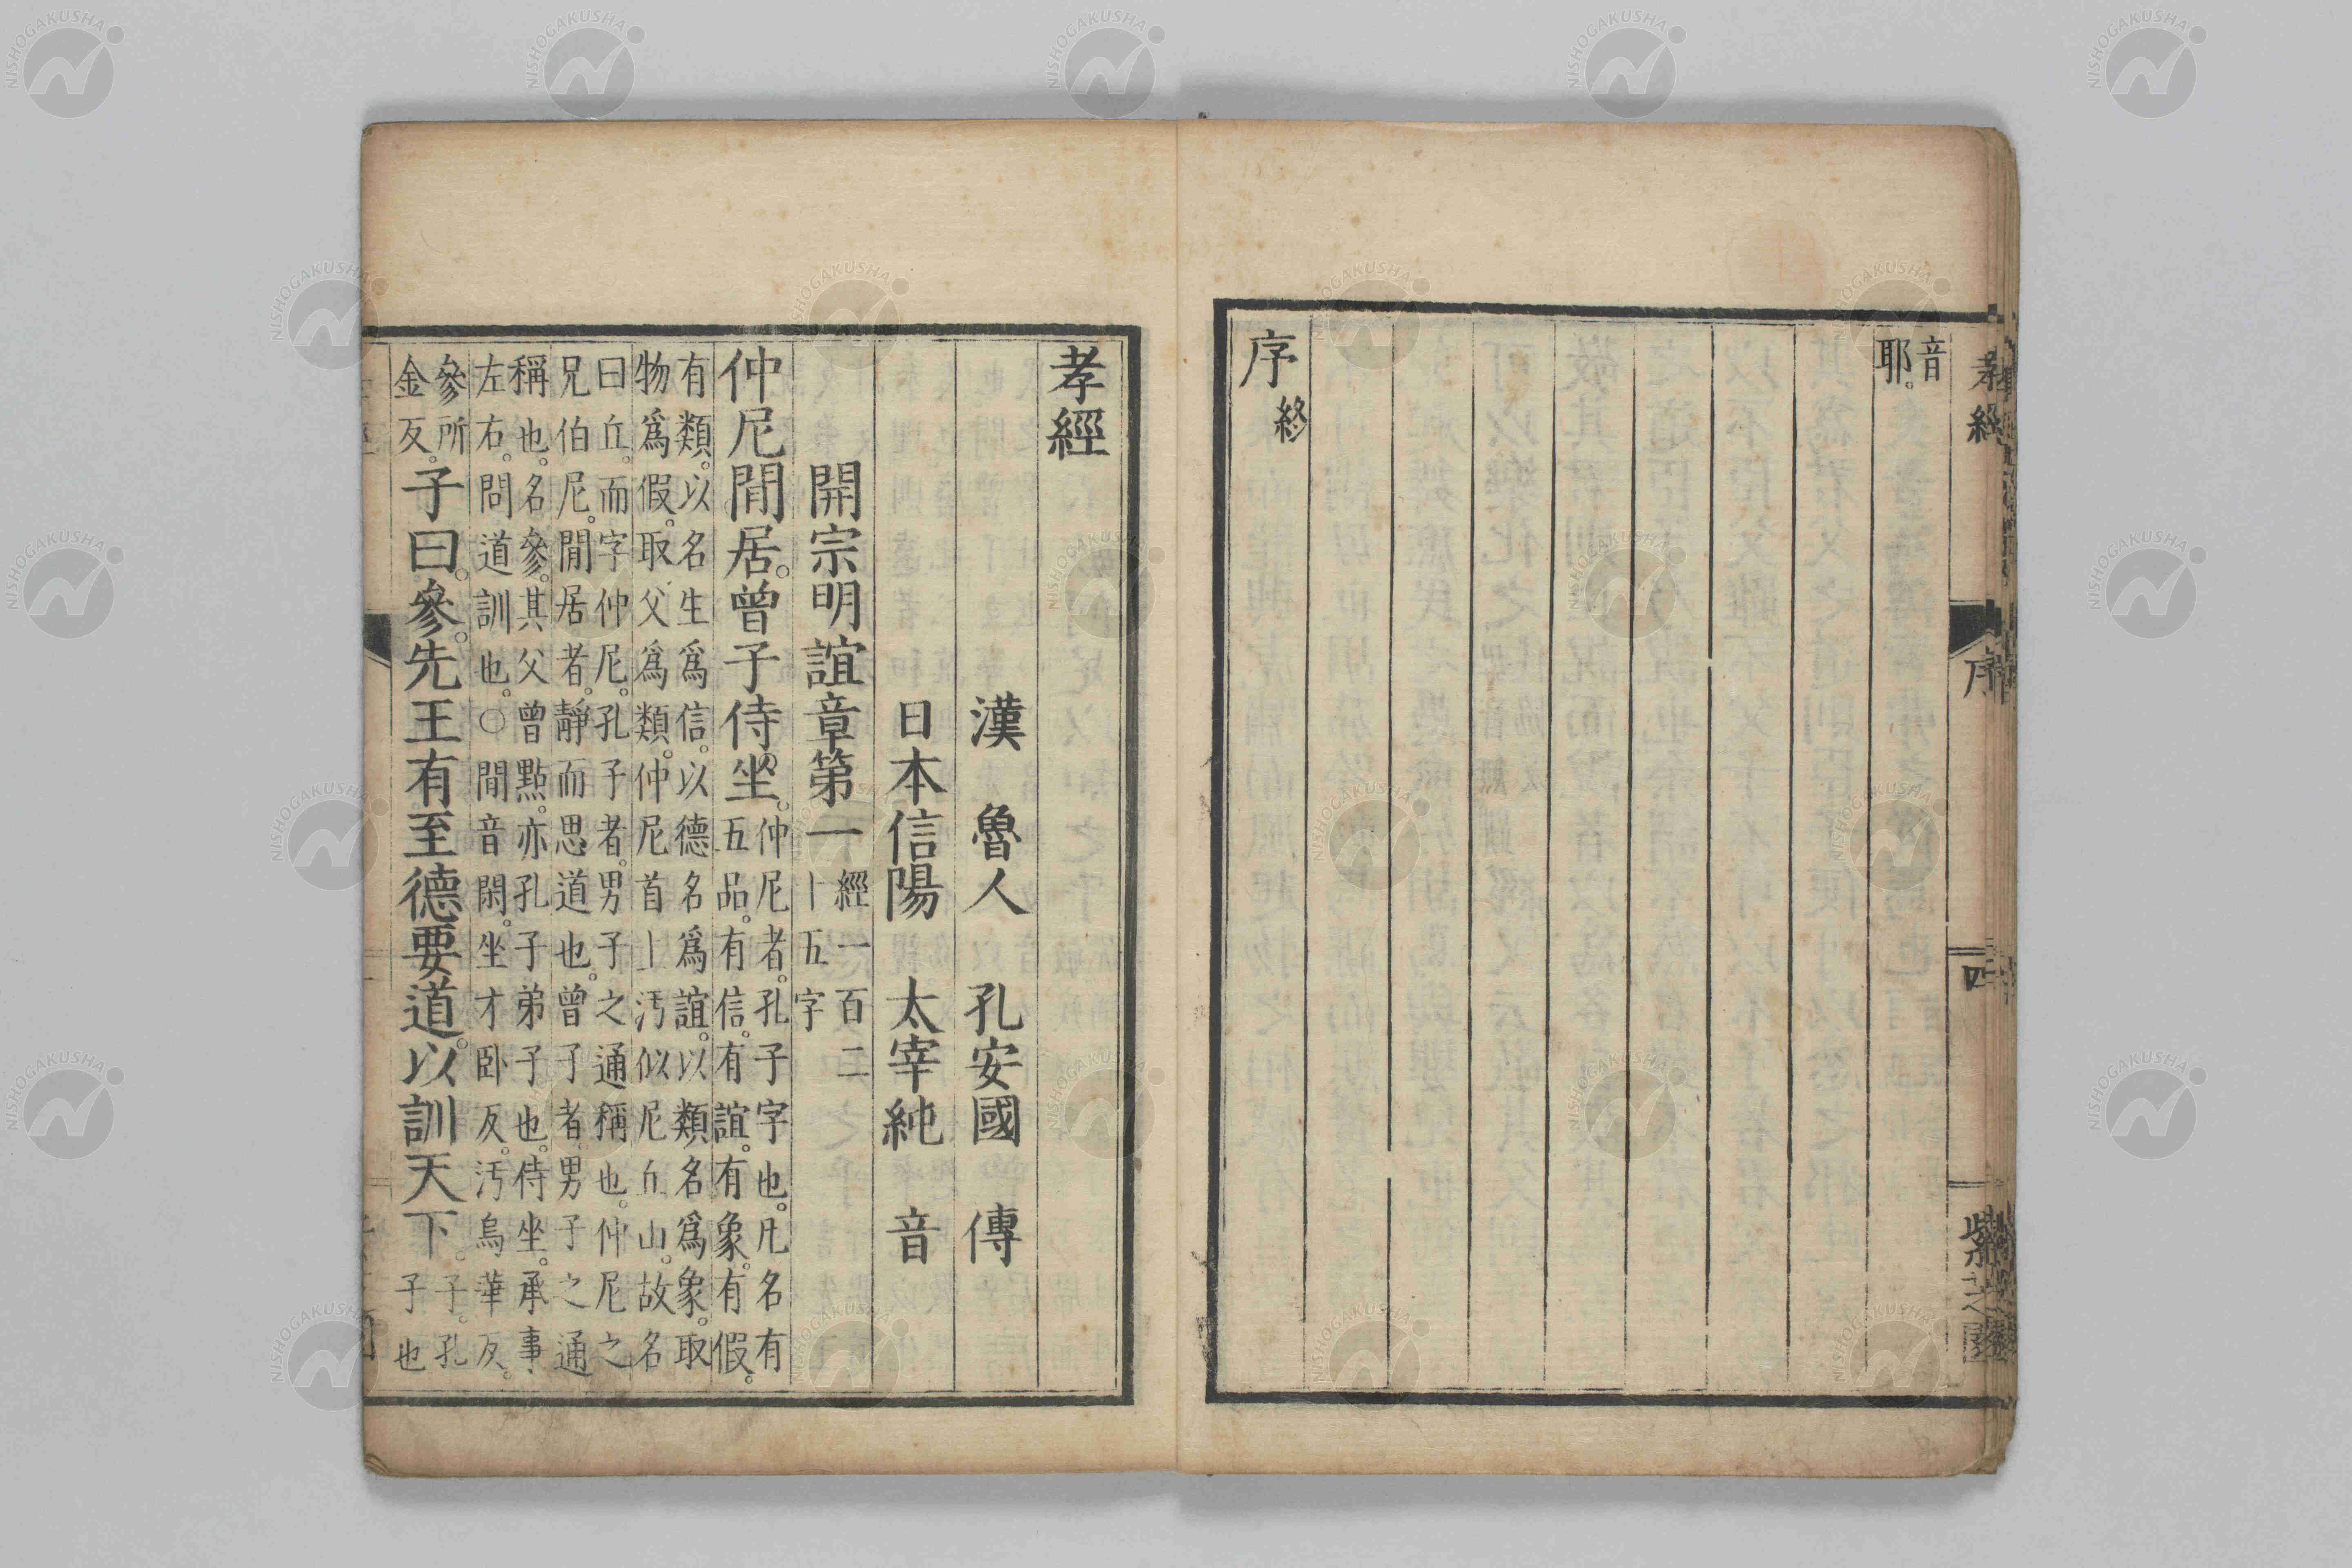 音
耶。
序終
孝經
序
四
紫芝園
孝經
漢 魯人 孔安國 傳
日本信陽 太宰純 音
開宗明誼章第一
經一百二
十五字
仲尼閒居。曾子侍坐。
仲尼者。孔子字也。凡名有
五品。有信。有誼。有象。有假。
有類。以名生爲信。以德名爲誼。以類名爲象。取
物爲假。取父爲類。仲尼首上汚似尼丘山。故名
曰丘。而字仲尼。孔子者。男子之通稱也。仲尼之
兄伯尼。閒居者。靜而思道也。曾子者。男子之通
稱也。名參。其父曾點。亦孔子弟子也。侍坐。承事
左右。問道訓也。○閒音閑。坐才臥反。汚烏華反。
參所
金反。
子曰。參。先王有至德要道。以訓天下。
子。孔
子也
NISHOGAKUSHA